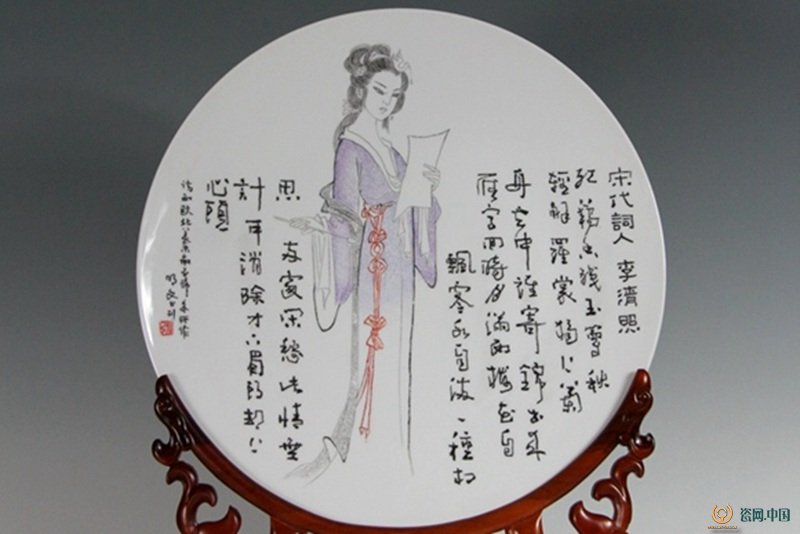 宋代詞人 李清照
红藕香残玉簟秋
輕解羅裳 独上蘭
舟 云中誰寄錦书来
雁字回時月满西楼花自
飄零水自流 一種相
思 两處闲愁 此情無
計可消除才下眉头却上
心頭
瓷网.中国